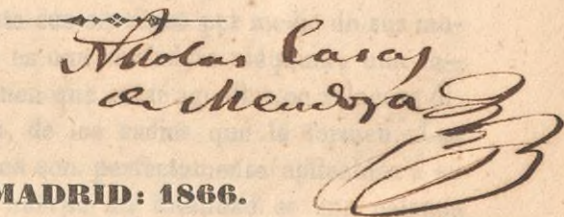 Nicolas Casas
de Mendoza
MADRID: 1866.